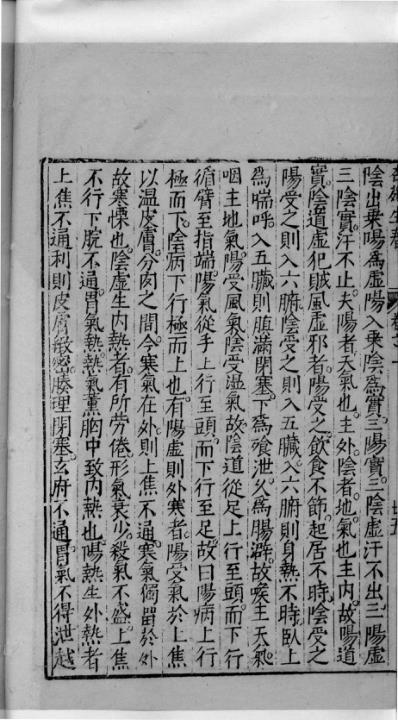 陰出乗陽爲虛陽入乗陰爲實三陽實三陰虛汗不出三陽虛
三陰實汗不止夫陽者天氣也主外陰者地氣也主内故陽道
實陰道虛犯賊風虛邪者陽受之飲食不節起居不時陰受之
陽受之則入六腑陰受之則入五臟入六腑則身熱不時臥上
爲喘呼入五臟則䐜滿閉塞下爲飱泄久爲腸澼故喉主天氣
咽主地氣陽受風氣陰受濕氣故陰道從足上行至頭而下行
循臂至指端陽氣從手上行至頭而下行至足故曰陽病上行
極而下陰病下行極而上也有陽虛則外寒者陽受氣於上焦
以温皮膚分肉之間今寒氣在外則上焦不通寒氣獨留於外
故寒慄也陰虛生内熱者有所勞倦形氣衰少殺氣不盛上焦
不行下脘不通胃氣熱熱氣薰胸中致内熱也陽熱生外熱者
上焦不通利則皮膚緻密腠理閉塞玄府不通胃氣不得泄越